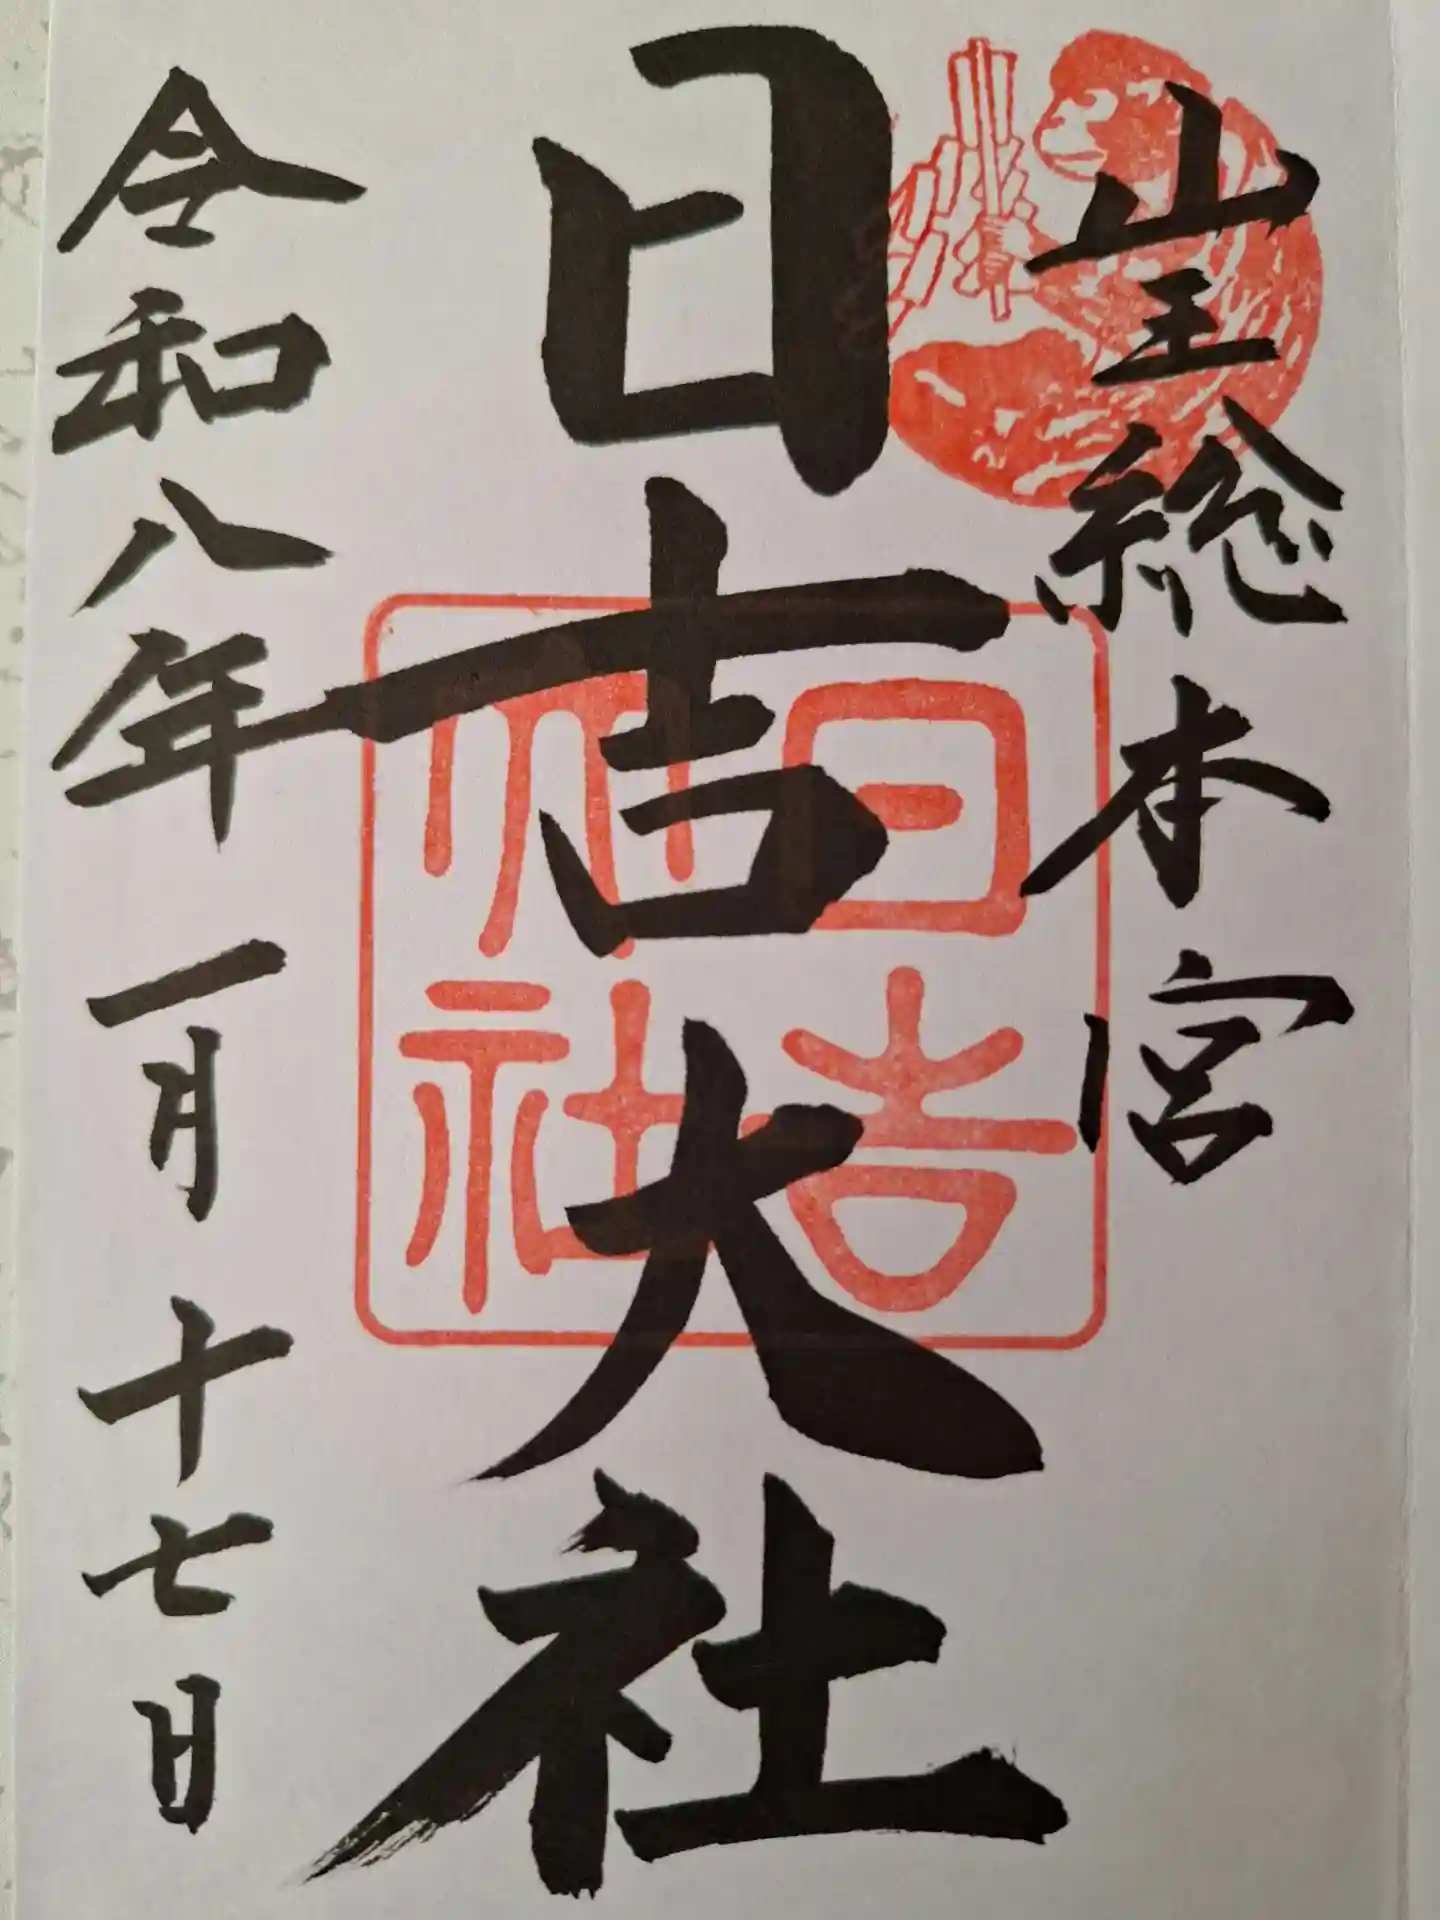 山王総本宮
日吉大社
日吉神社
令和八年一月十七日